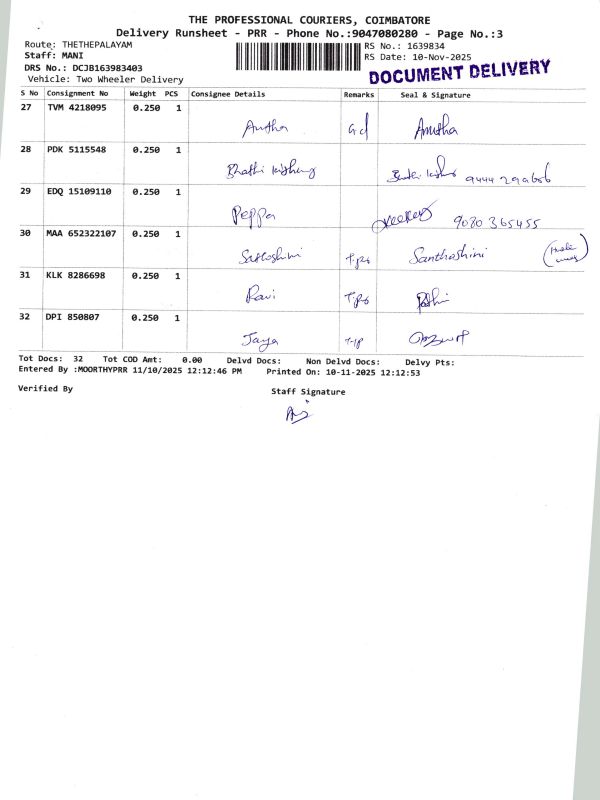 THE PROFESSIONAL COURIERS, COIMBATORE
Delivery Runsheet - PRR - Phone No.:9047080280 - Page No.:3
Route: THETHEPALAYAM
RS No.: 1639834
Staff: MANI
RS Date: 10-Nov-2025
DRS No.: DCJB163983403
Vehicle: Two Wheeler Delivery
DOCUMENT DELIVERY
S No Consignment No Weight PCS Consignee Details Remarks Seal & Signature
27 TVM 4218095 0.250 1
Anutha Anutha
28 PDK 5115548 0.250 1
29 EDQ 15109110 0.250 1
Peppa 9080365455
30 MAA 652322107 0.250 1
Santhoshini
31 KLK 8286698 0.250 1
Ravi
32 DPI 850807 0.250 1
Jaya
Tot Docs: 32 Tot COD Amt: 0.00 Delvd Docs: Non Delvd Docs: Delvy Pts:
Entered By :MOORTHYPRR 11/10/2025 12:12:46 PM Printed On: 10-11-2025 12:12:53
Verified By Staff Signature